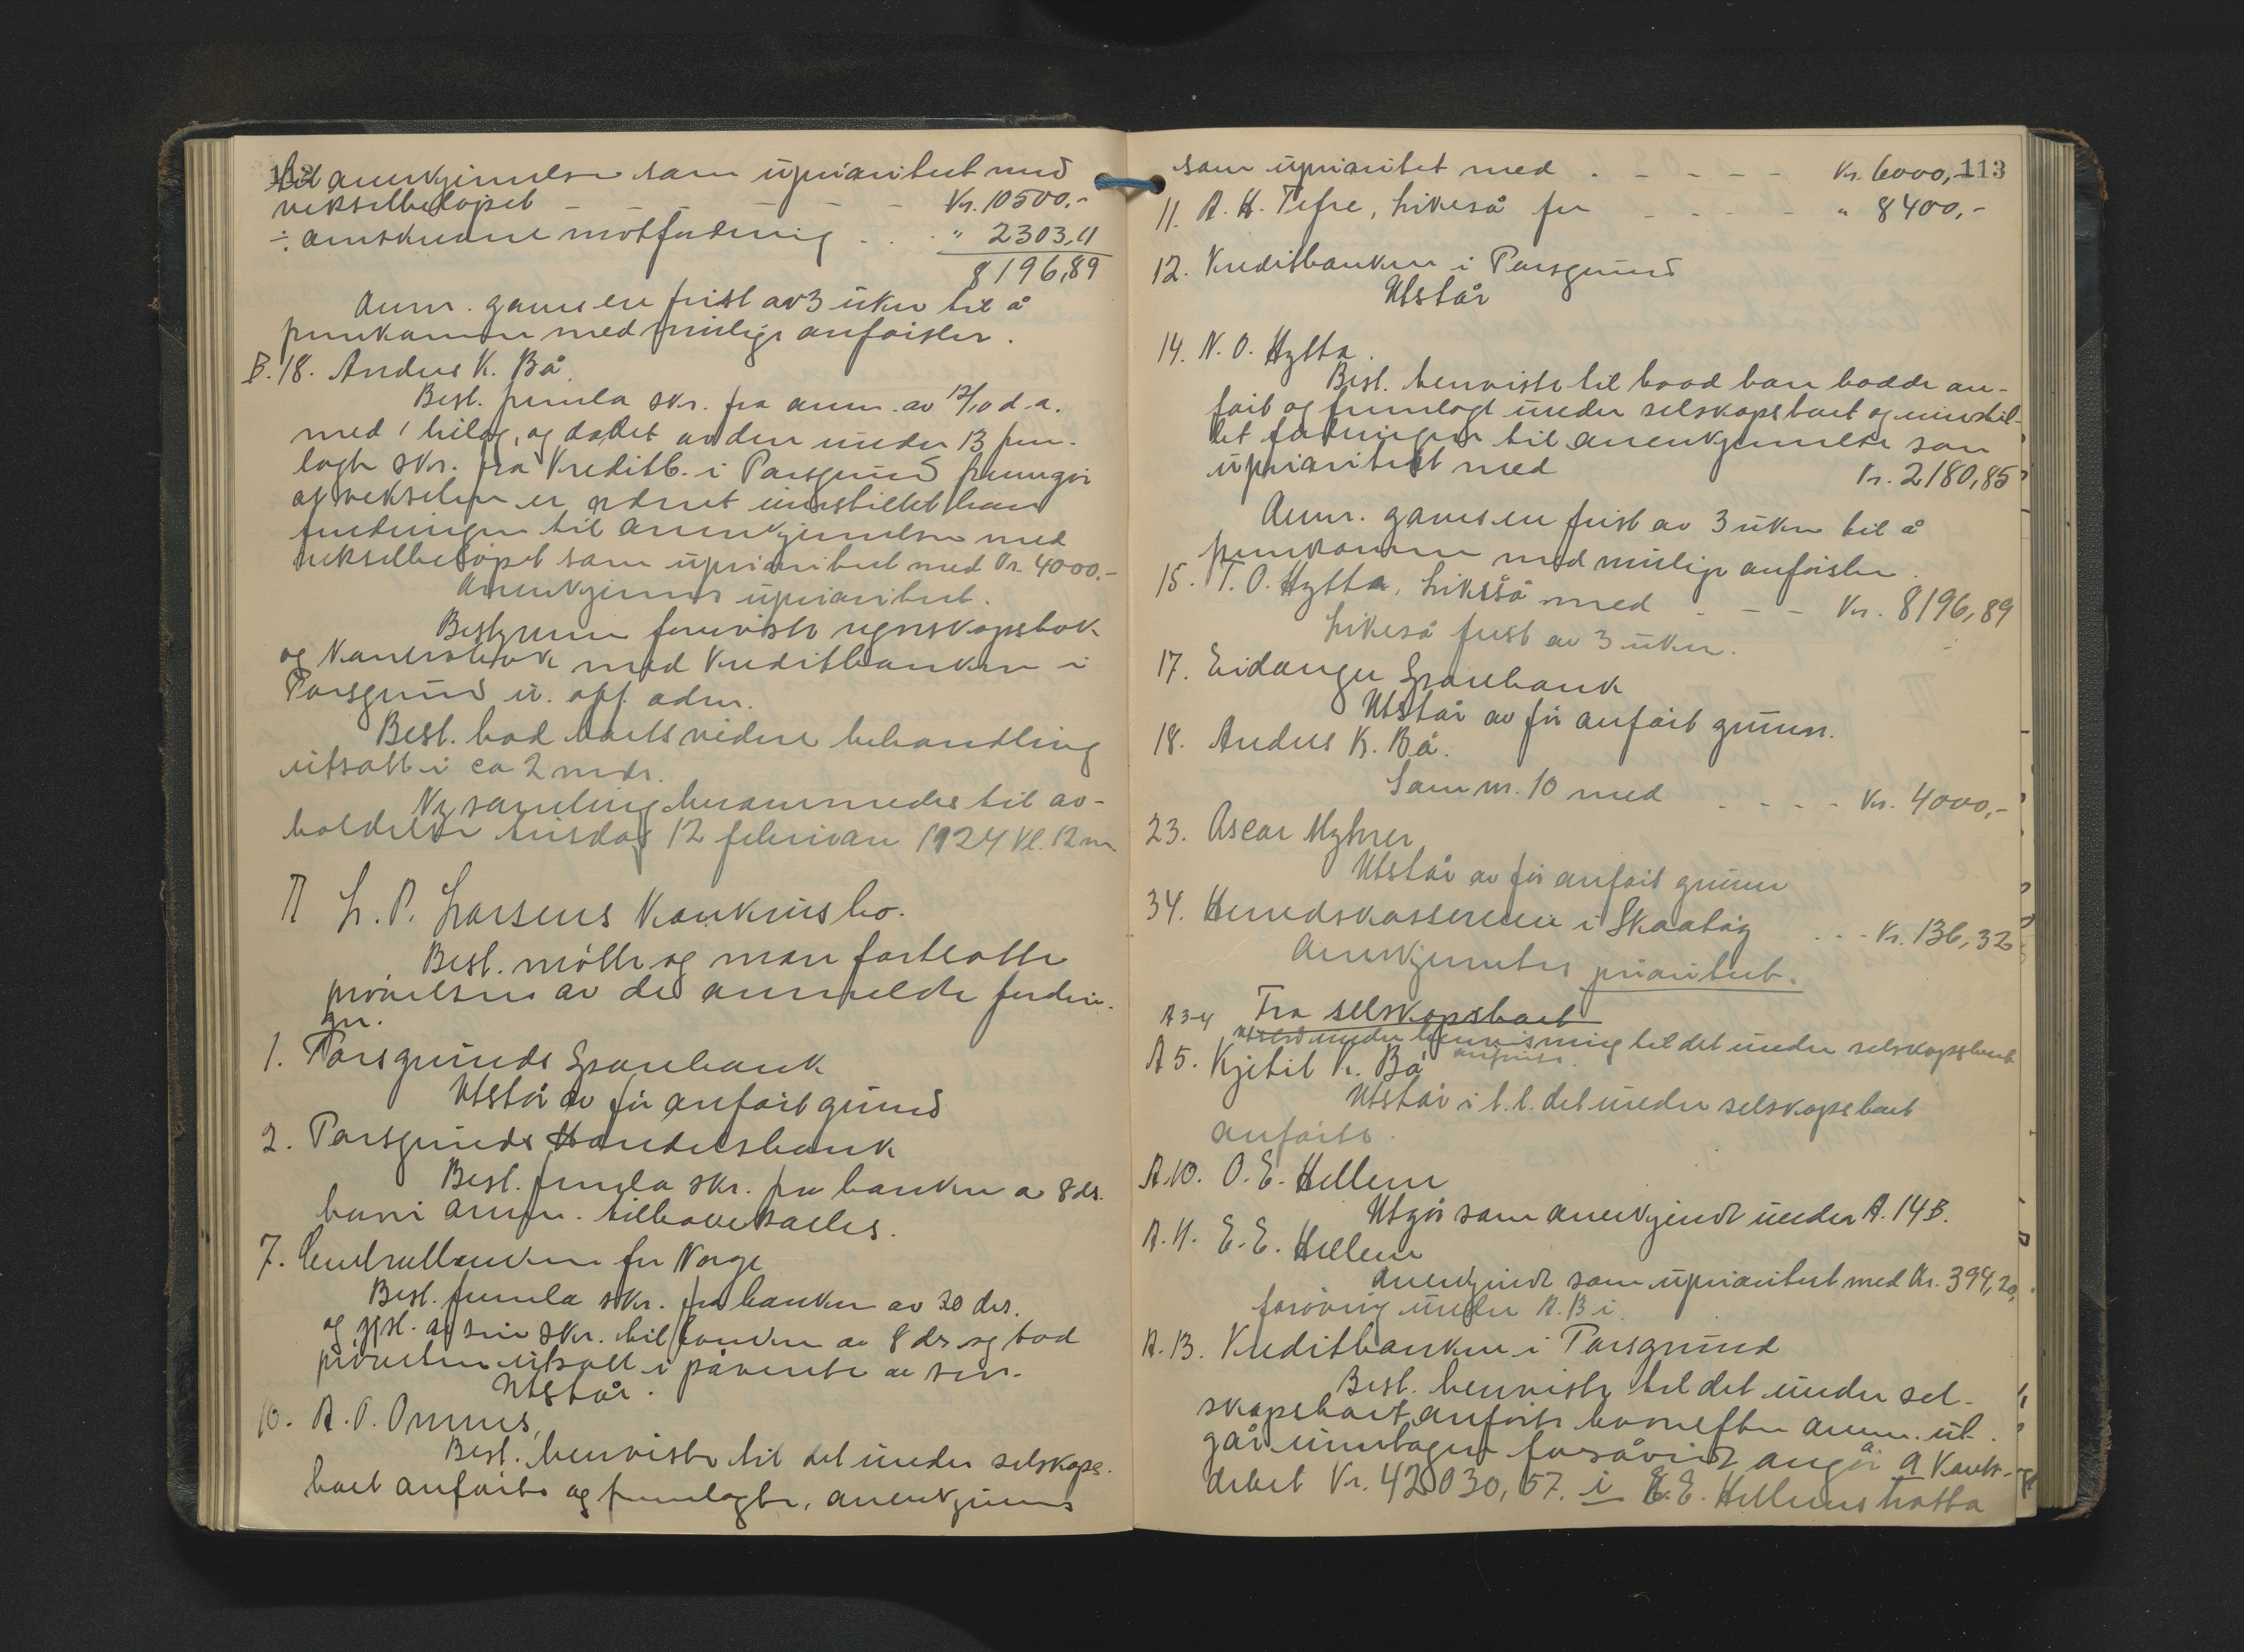 112
til anerkjennelse som uprioritert med
vekselbeløpet - - - - - - Kr. 10500.-
÷ omskrevne motfordring . . . " 2303,11
8196,89
Anm. gaves en frist av 3 uker til å
fremkomme med mulige anførsler.
B. 18. Andres K. Bå
Best. fremla skr. fra anm. av 12/10 d.a.
med 1 bilag, og da det av den under 13 frem-
lagte skr. fra Kreditb. i Porsgrund fremgår
at vekselen er ordnet innstillet han
fordringen til anerkjennelse med
vekselbeløpet som uprioritert med Kr. 4000.-
Anerkjennes uprioritert.
Bestyreren foreviste regnskapsbok
og kontrabok med Kreditbanken i
Porsgrund u. off. adm.
Best. bad boets videre behandling
utsatt i ca 2 mdr.
Ny samling berammedes til av-
holdelse tirsdag 12 februar 1924 kl. 12 m.
L. P. Larsens Konkursbo.
Best. møtte og man fortsatte
prøvelsen av de anmeldte fordrin-
ger.
1. Porsgrunds Sparebank
Utstår av før anført grund
2. Porsgrunds Handelsbank
Best. fremla skr. fra banken av 8 ds.
hvori anm. tilbakekalles.
7. Centralbanken for Norge
Best. fremla skr. fra banken av 30 ds.
og gjsl. av sin skr. til banken av 8 ds og bad
prøvelsen utsatt i påvente av svar.
Utstår.
10. A. P. Omnes,
Best. henviste til det under selskaps-
boet anførte og fremlagte, anerkjennes
som uprioritet med . - - - - Kr. 6000,- 113
11. A. H. Tefre, Likeså for - - - - " 8400,-
12. Kreditbanken i Porsgrund
Utstår
14. N. O. Hytta.
Best. henviste til hvad han hadde an-
ført og fremlagt under selskapsboet og innstil-
let fordringen til anerkjennelse som
uprioritert med Kr. 2180,85
Anm. gaves en frist av 3 uker til å
fremkomme med mulige anførsler.
15. T. O. Hytta, Likeså med - - - Kr. 8196,89
Likeså frist av 3 uker.
17. Eidanger Sparebank
Utstår av før anført grunn.
18. Andres K. Bå.
Som nr. 10 med - - - - Kr. 4000,-
23. Oscar Myhrer
Utstår av før anført grunn
34. Herredskassereren i Skaatøy . . . Kr. 136,32
Anerkjentes prioritert.
A 3-4 Fra selskapsboet
utstod under henvisning til det under selskapsboet
anførte.
A 5. Kjetil K. Bå
Utstår i h.t. det under selskapsboet
anførte.
A. 10. O. E. Hellem
Utgår som anerkjendt under A. 14 B.
A. 11. E. E. Hellem
Anerkjendt som uprioritert med Kr. 394,20,
forøvrig under A. 13 i
A. 13. Kreditbanken i Porsgrund
Best. henviste til det under sel-
skapsboet anførte hvorefter anm. ut-
går unntagen forsåvidt angår a Konto-
debet Kr. 42030,57. i E. E. Hellems tratta